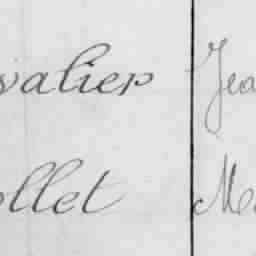 valier Jea
ollet M